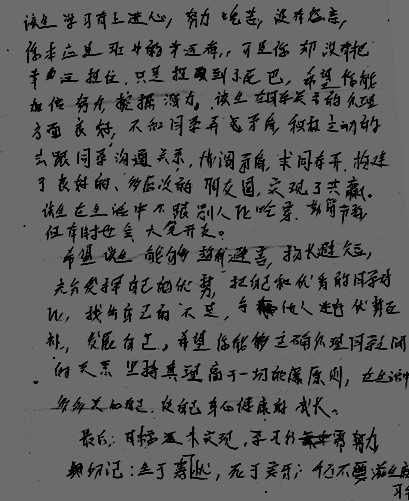 该生学习有上进心，努力吃苦，没有怨言，
你本应是班级的幸运者，可是你却没有把
幸运抓住，只是抓到了尾巴，希望你能
加倍努力挖掘潜力。该生在同学关系的处理
方面良好，不和同学弄气矛盾，积极主动的
去跟同学沟通关系，协调矛盾，求同存异，构建
了良好的、多层次的朋友圈，实现了共赢。
该生在生活中不跟别人比吃穿，勤俭节约
但有时也会大手大脚。
希望该生能够趋利避害，扬长避短，
充分发挥自己的优势，把自己和优秀的同学对
比，找出自己的不足，与他人进行优势互
补，发展自己，希望你能够正确处理同学之间
的关系 坚持真理高于一切的原则，在生活中
多多关心自己，使自己身心健康的成长。
最后：目标还未实现，学习仍需努力
要切记：生于忧患，死于安乐；千万不要满足